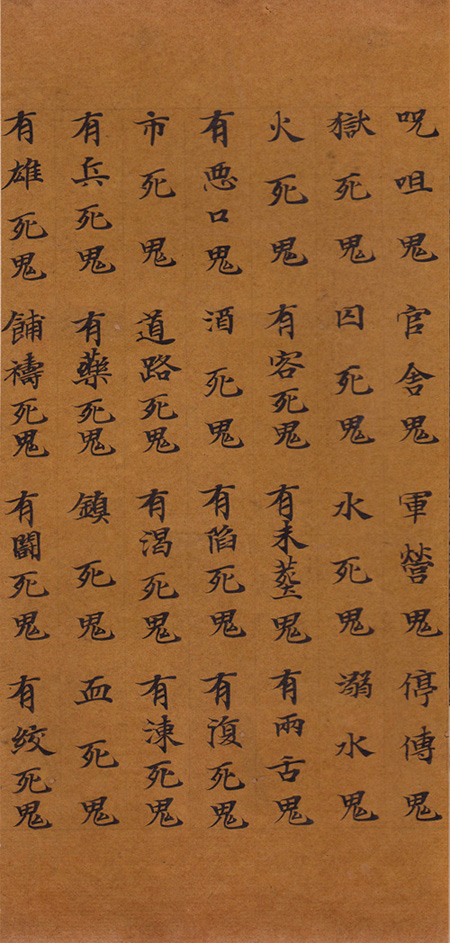 呪咀鬼 官舍鬼 軍營鬼 停傳鬼
獄死鬼 囚死鬼 水死鬼 溺水鬼
火死鬼 有客死鬼 有未葬鬼 有兩舌鬼
有惡口鬼 酒死鬼 有陷死鬼 有復死鬼
市死鬼 道路死鬼 有渴死鬼 有凍死鬼
有兵死鬼 有藥死鬼 鎮死鬼 血死鬼
有雄死鬼 餔禱死鬼 有鬭死鬼 有絞死鬼